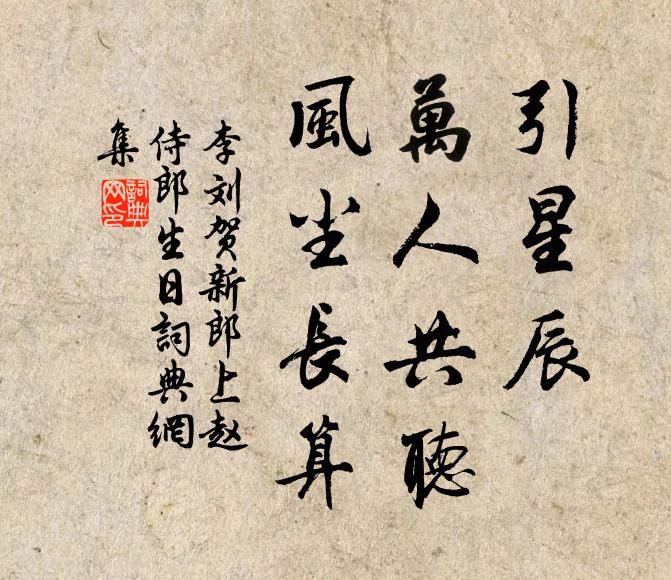 引星辰
萬人共聽
風尘長算
李刘贺新郎上赵
侍郎生日詞典網
集
詞典
网印